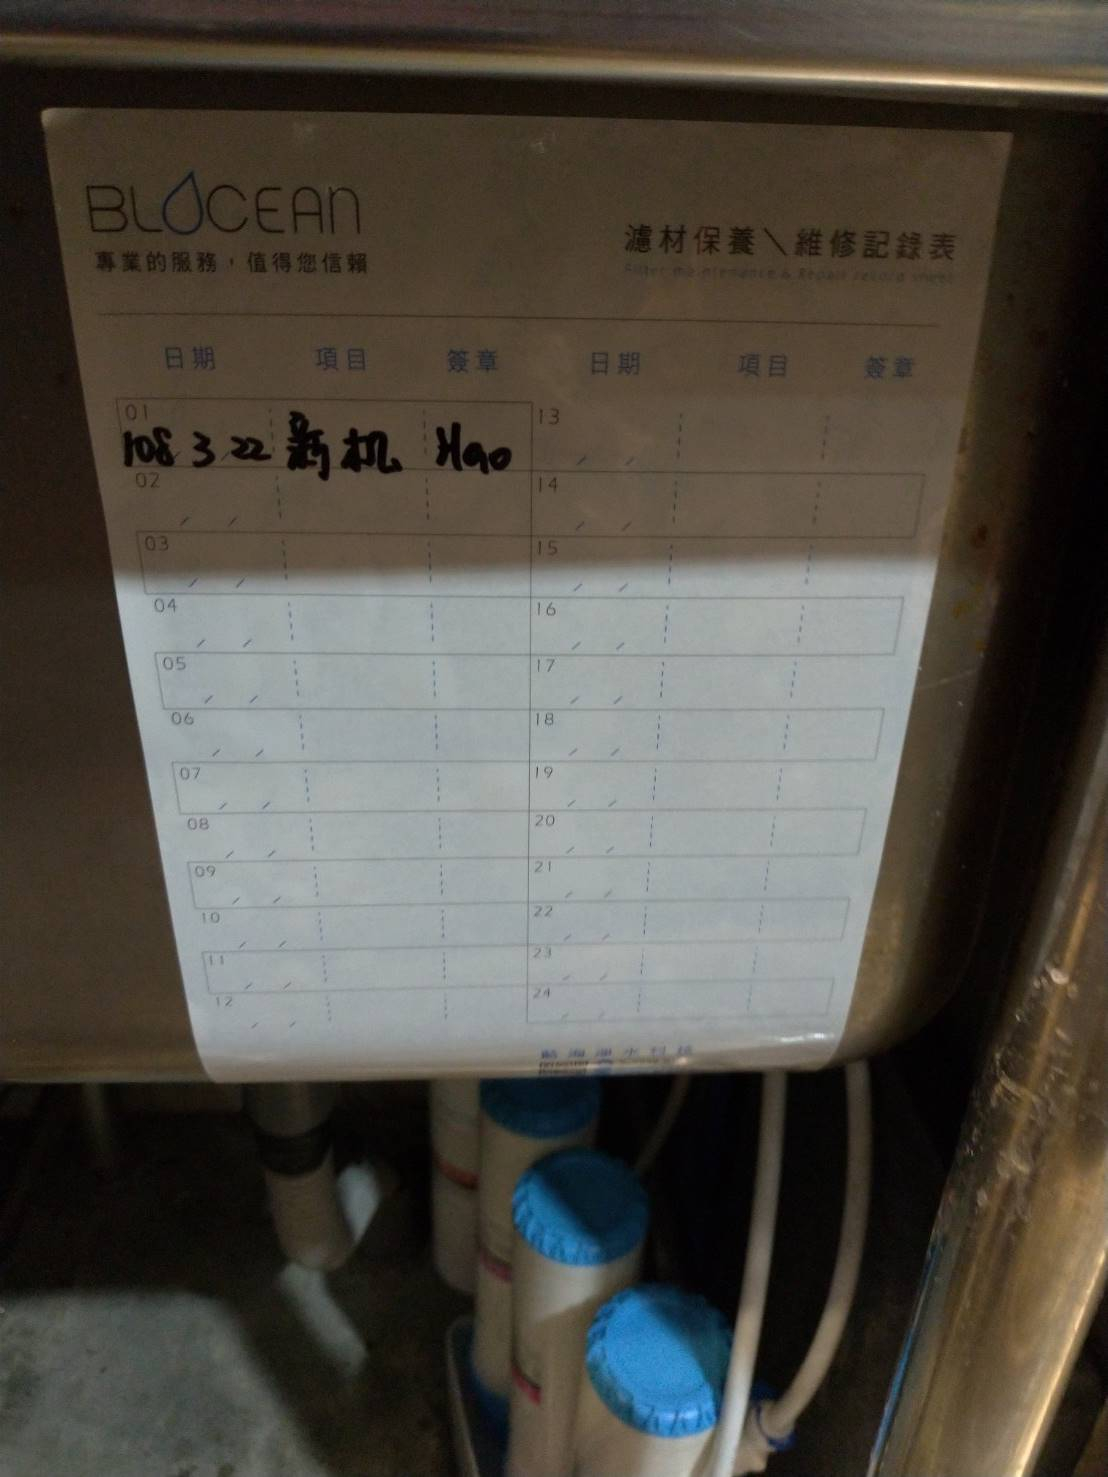 BLOCEAN
專業的服務，值得您信賴
濾材保養＼維修記錄表
Filter maintenance & Repair record sheet
日期 項目 簽章 日期 項目 簽章
01 108 3 22 新机 Hao 13
02 14
03 15
04 16
05 17
06 18
07 19
08 20
09 21
10 22
11 23
12 24